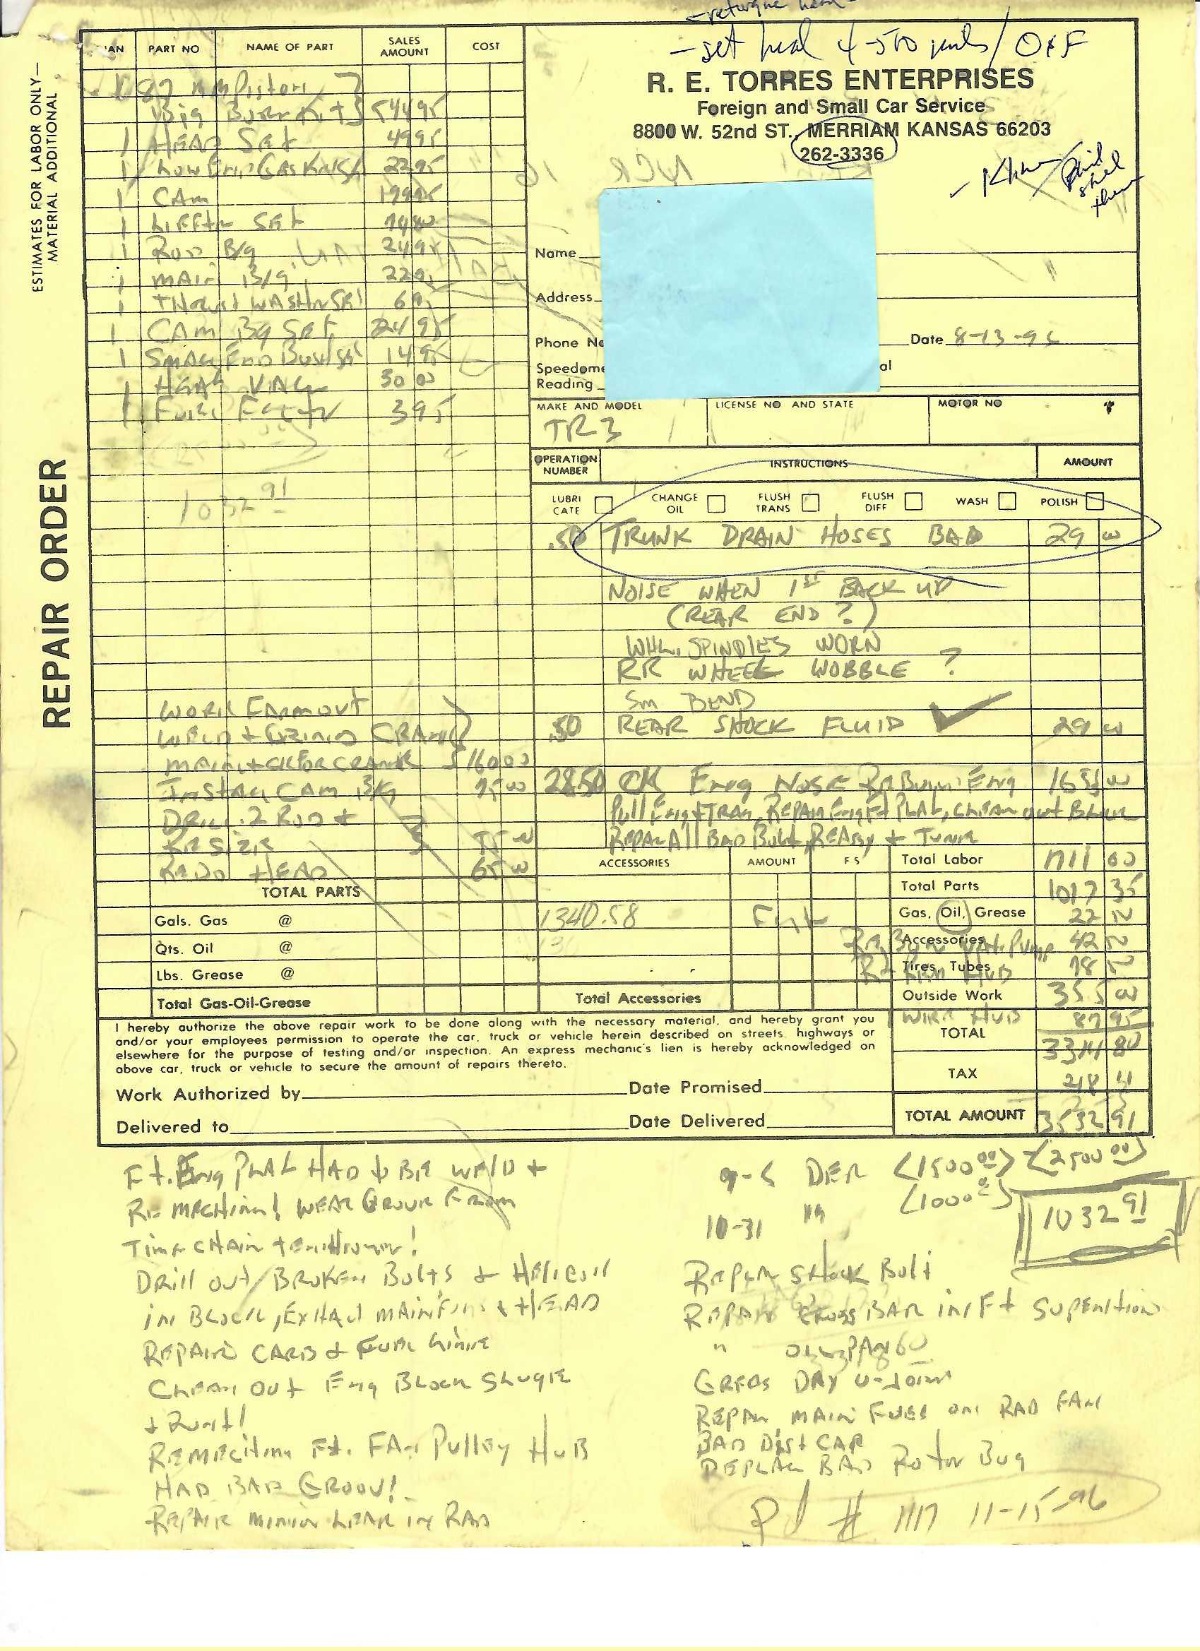 - retorque head
- set heal 4-500 miles / OFF
R. E. TORRES ENTERPRISES
Foreign and Small Car Service
8800 W. 52nd ST., MERRIAM KANSAS 66203
262-3336
ESTIMATES FOR LABOR ONLY—
MATERIAL ADDITIONAL
REPAIR ORDER
QUAN PART NO NAME OF PART SALES AMOUNT COST
1 87 mm Piston
Big Bore Kit 544 95
1 HEAD SET 49 95
1 Low End Gasket 22 95
1 CAM 179 95
1 Lifter SET
1 ROD B/g 24 95
1 MAIN B/g
1 THRUST WASHER SET 6
1 CAM Bg SET 24 95
1 Small End Bush Set 14 95
1 30 00
1 Fuel Filter 3 95
1032 91
Name
Address
Phone No
Date 8-13-96
Speedome
Reading
al
MAKE AND MODEL LICENSE NO AND STATE MOTOR NO
TR3
OPERATION NUMBER INSTRUCTIONS AMOUNT
LUBRI CATE CHANGE OIL FLUSH TRANS FLUSH DIFF WASH POLISH
.50 TRUNK DRAIN HOSES BAD 29 00
NOISE WHEN 1ST BACK UP
(REAR END ?)
WHL. SPINDLES WORN
RR WHEEL WOBBLE ?
SM BEND
.50 REAR SHOCK FLUID ✓ 29 00
28.50 CK Eng NOSE Eng 1653 00
Pull Eng + TRAN, REPAIR Eng Ft PLAT, CLEAN out Block
REPAIR All BAD Bolt, READY + TUNE
WORK FARMOUT
WELD + GRIND CRANK
$160 00
INSTALL CAM B/g 75 00
DRILL 2 ROD +
RESIZE 55 00
REDO HEAD 65 00
TOTAL PARTS
Gals. Gas @
Qts. Oil @
Lbs. Grease @
Total Gas-Oil-Grease
ACCESSORIES AMOUNT F S
1340.58
Total Accessories
Total Labor 1711 00
Total Parts 1017 35
Gas, Oil, Grease 22
Accessories 42
Tires Tubes 78
Outside Work 355 00
WIRE HUB 87 95
TOTAL 3314 80
TAX 218 11
TOTAL AMOUNT 3532 91
I hereby authorize the above repair work to be done along with the necessary material, and hereby grant you
and/or your employees permission to operate the car, truck or vehicle herein described on streets, highways or
elsewhere for the purpose of testing and/or inspection. An express mechanic's lien is hereby acknowledged on
above car, truck or vehicle to secure the amount of repairs thereto.
Work Authorized by Date Promised
Delivered to Date Delivered
Ft. Eng PLAT HAD to BE WELD +
REMECHIN! WEAR GROUV FROM
TIME CHAIN
Drill out BROKEN Bolts + HELICOIL
IN BLOCK, EXHAUST MAINFIN + HEAD
REPAIRS CARB + FUEL LINE
CLEAN OUT Eng BLOCK SLUGE
+ Rust!
REMECHIN Ft. FAN PULLEY HUB
HAD BAD GROOV!
REPAIR MINIR LEAK IN RAD
9-5 DER <1500 00> <2500 00>
10-31 " <1000 00>
1032 91
REPAIR SHOCK Bolt
REPAIR CROSS BAR IN Ft SUPENTION
" OIL PAN
GREAS DRY U-JOINT
REPAIR MAIN FUES ON RAD FAN
BAD DIST CAP
REPLAC BAD ROTOR BUG
Pd # 1117 11-15-96